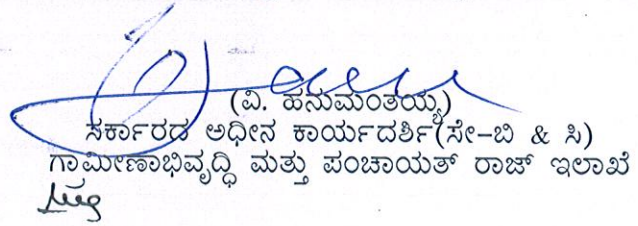 (ವಿ. ಹನುಮಂತಯ್ಯ)
ಸರ್ಕಾರದ ಅಧೀನ ಕಾರ್ಯದರ್ಶಿ(ಸೇ-ಬಿ & ಸಿ)
ಗ್ರಾಮೀಣಾಭಿವೃದ್ಧಿ ಮತ್ತು ಪಂಚಾಯತ್ ರಾಜ್ ಇಲಾಖೆ